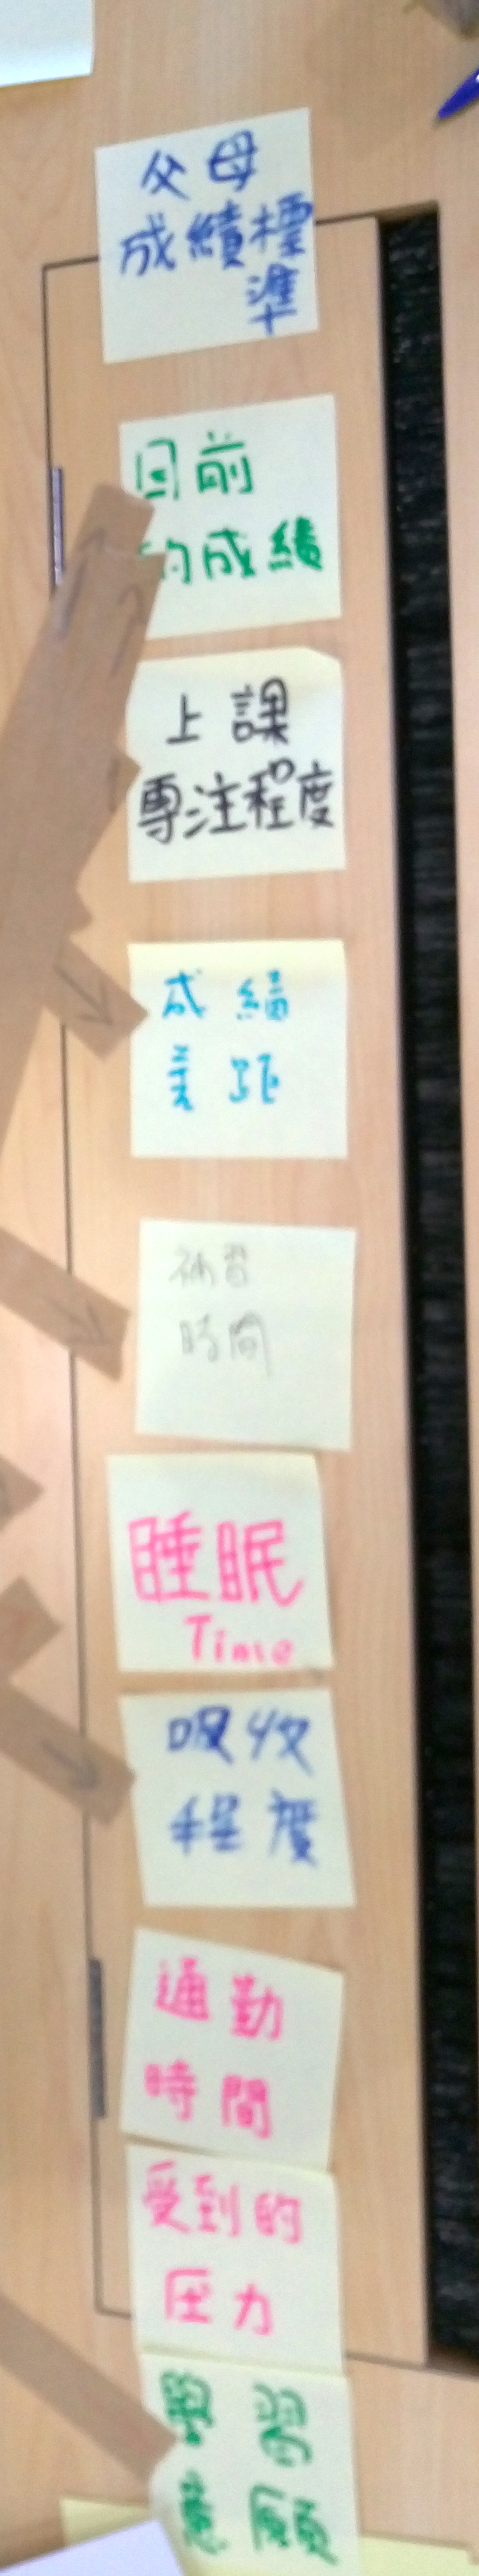 父母
成績標
準
目前
的成績
上課
專注程度
成績
差距
補習
時間
睡眠
Time
吸收
程度
通勤
時間
受到的
压力
學習
意願